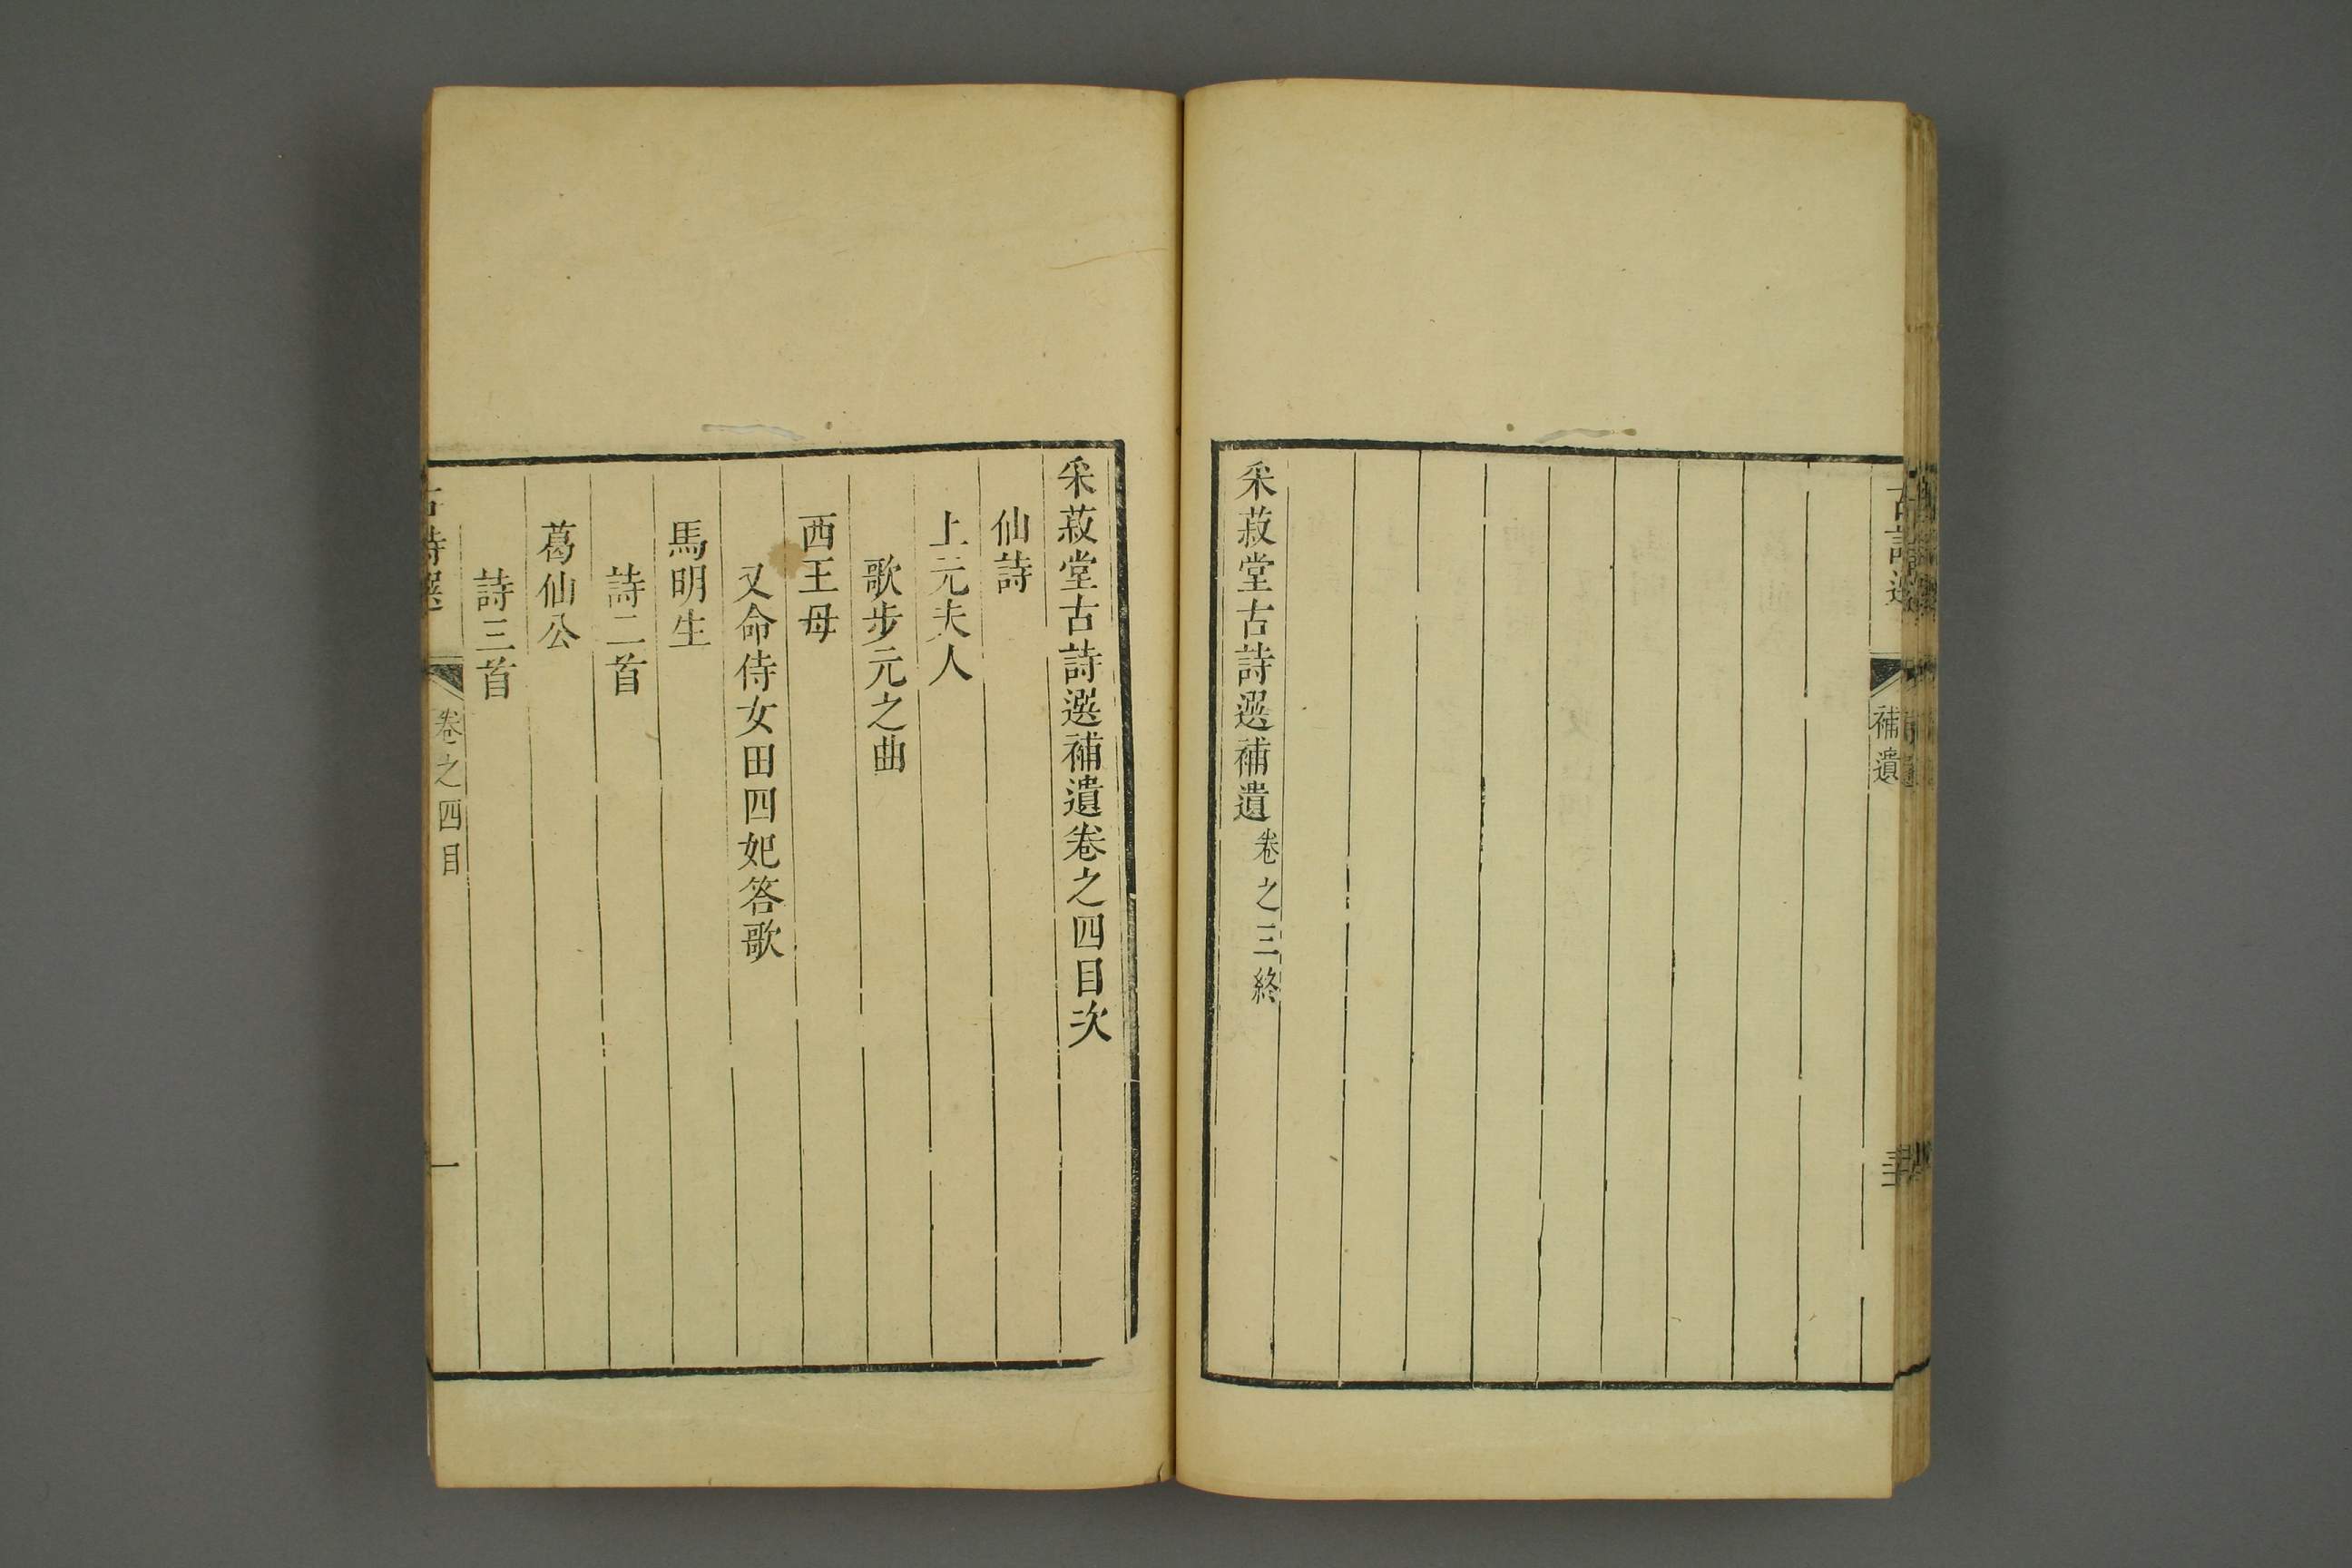 補遺
采菽堂古詩選補遺卷之三終
采菽堂古詩選補遺卷之四目次
仙詩
上元夫人
歌步元之曲
西王母
又命侍女田四妃答歌
馬明生
詩二首
葛仙公
詩三首
古詩選
卷之四目
一